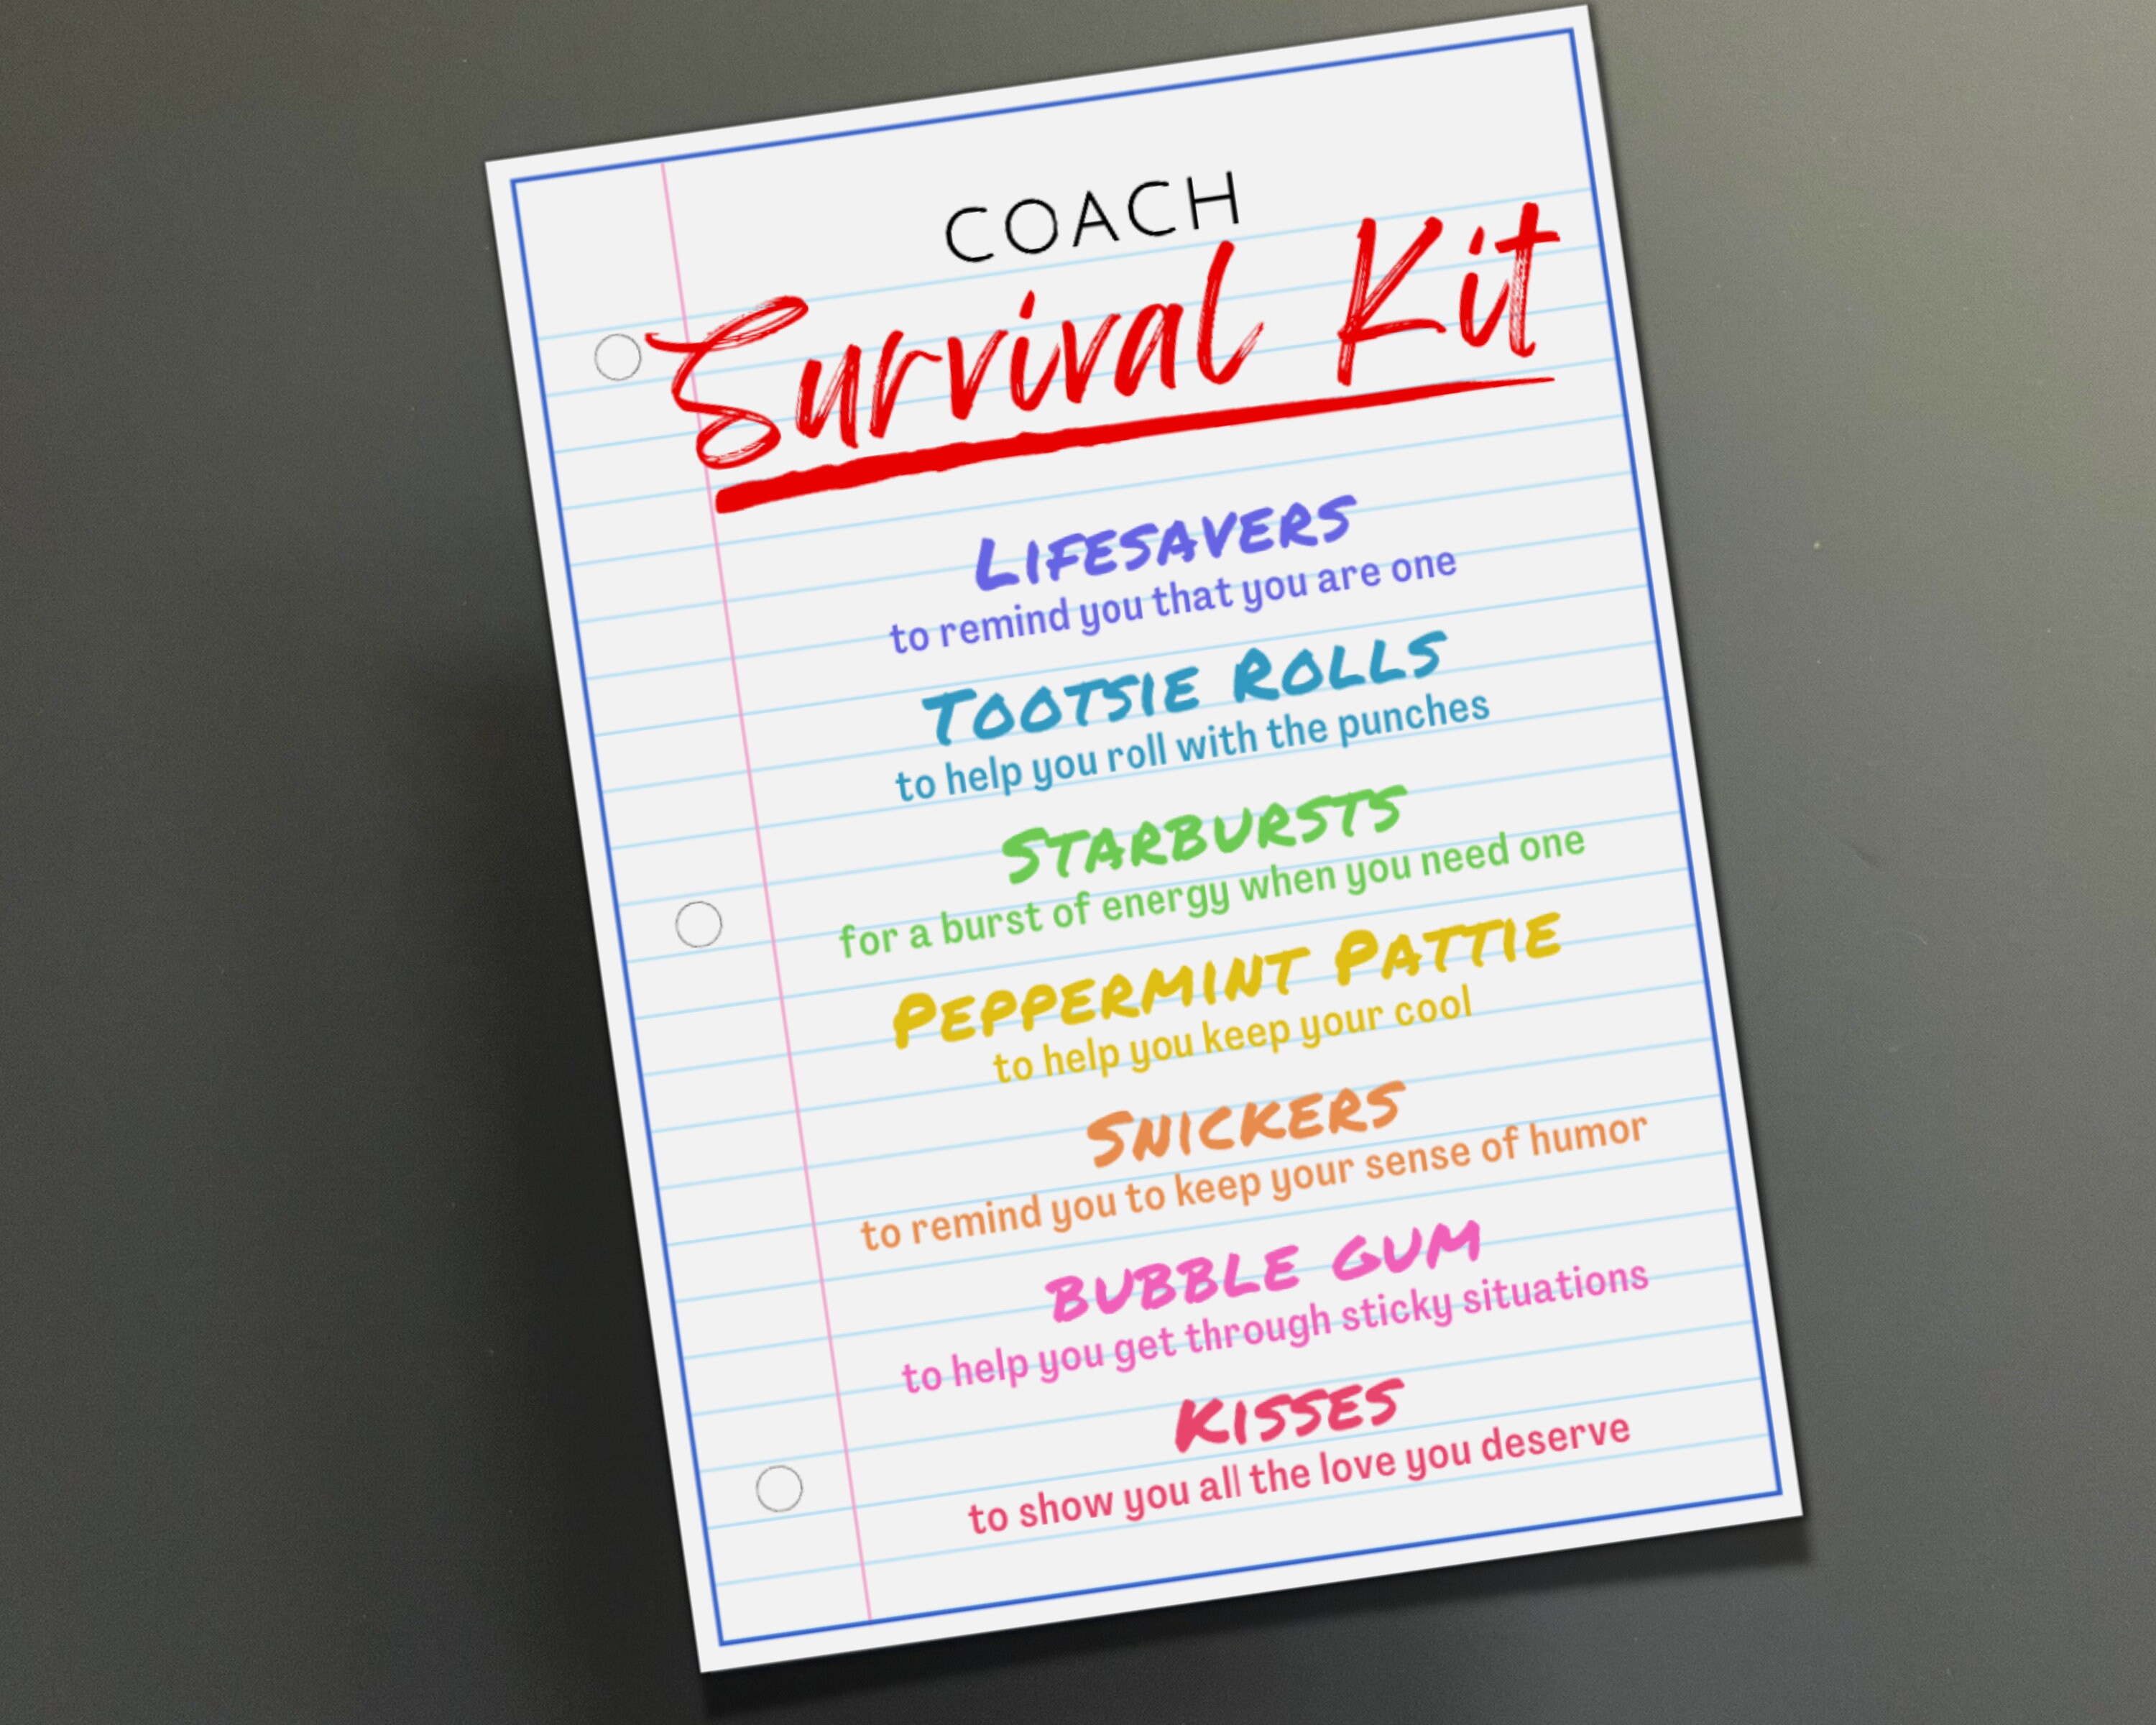 COACH
Survival Kit
LIFESAVERS
to remind you that you are one
TOOTSIE ROLLS
to help you roll with the punches
STARBURSTS
for a burst of energy when you need one
PEPPERMINT PATTIE
to help you keep your cool
SNICKERS
to remind you to keep your sense of humor
BUBBLE GUM
to help you get through sticky situations
KISSES
to show you all the love you deserve